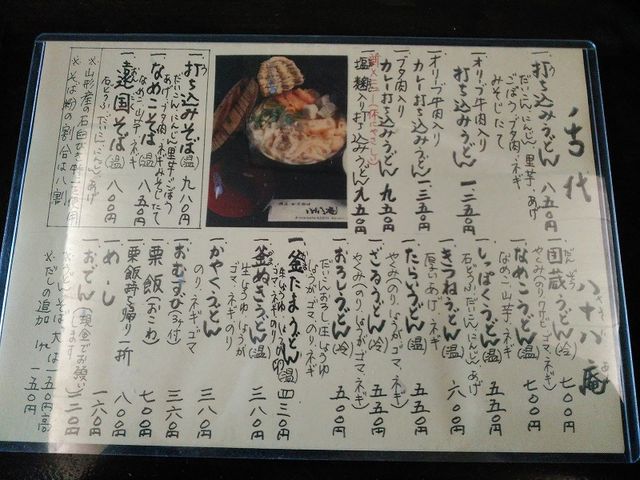 古代
八十八庵
一、打ち込みうどん 八五〇円
だいこん、にんじん、里芋、あげ
ごぼう、ブタ肉、ネギ
みそじたて
一、オリーブ牛肉入り
打ち込みうどん 一、二五〇円
一、オリーブ牛肉入り
カレー打ち込みうどん 一、三五〇円
一、ブタ肉入り
カレー打ち込みうどん 九五〇円
一、塩麹入り打ち込みうどん 九五〇円
一、打ち込みそば(温) 九八〇円
だいこん、にんじん、里芋、ごぼう
あげ、ブタ肉、ネギみそじたて
一、なめこそば(温) 八五〇円
なめこ、山芋、ネギ
一、遠国そば(温) 八〇〇円
石どうふ、だいこん、にんじん、あげ
※山形産の石臼びき粉を使用
※そば粉の割合は八割
一、団蔵うどん(冷) 七〇〇円
一、なめこうどん(温) 七〇〇円
なめこ、山芋、ネギ
一、しっぽくうどん(温) 五五〇円
石どうふ、だいこん、にんじん、あげ
一、きつねうどん(温) 六〇〇円
厚あげ、ネギ
一、たらいうどん(温) 五五〇円
やくみ(のり、しょうが、ゴマ、ネギ)
一、ざるうどん(冷) 五五〇円
やくみ(のり、しょうが、ゴマ、ネギ)
一、おろしうどん(冷) 五五〇円
だいこんおろし、生じょうゆ
しょうが、ゴマ、のり、ネギ
一、釜たまうどん(温) 四三〇円
ゴマ、ネギ、のり
一、釜ぬきうどん(温) 三八〇円
生じょうゆ、しょうが
ゴマ、ネギ、のり
一、かやくうどん 三八〇円
のり、ネギ、ゴマ
一、おむすび(二ケ付) 三六〇円
一、栗飯(おこわ) 七〇〇円
栗飯持ち帰り一折 八〇〇円
一、めし 一六〇円
一、おでん(現金でお願いします) 一二〇円
※うどん、そば大は一五〇円高
※だしの追加は一五〇円